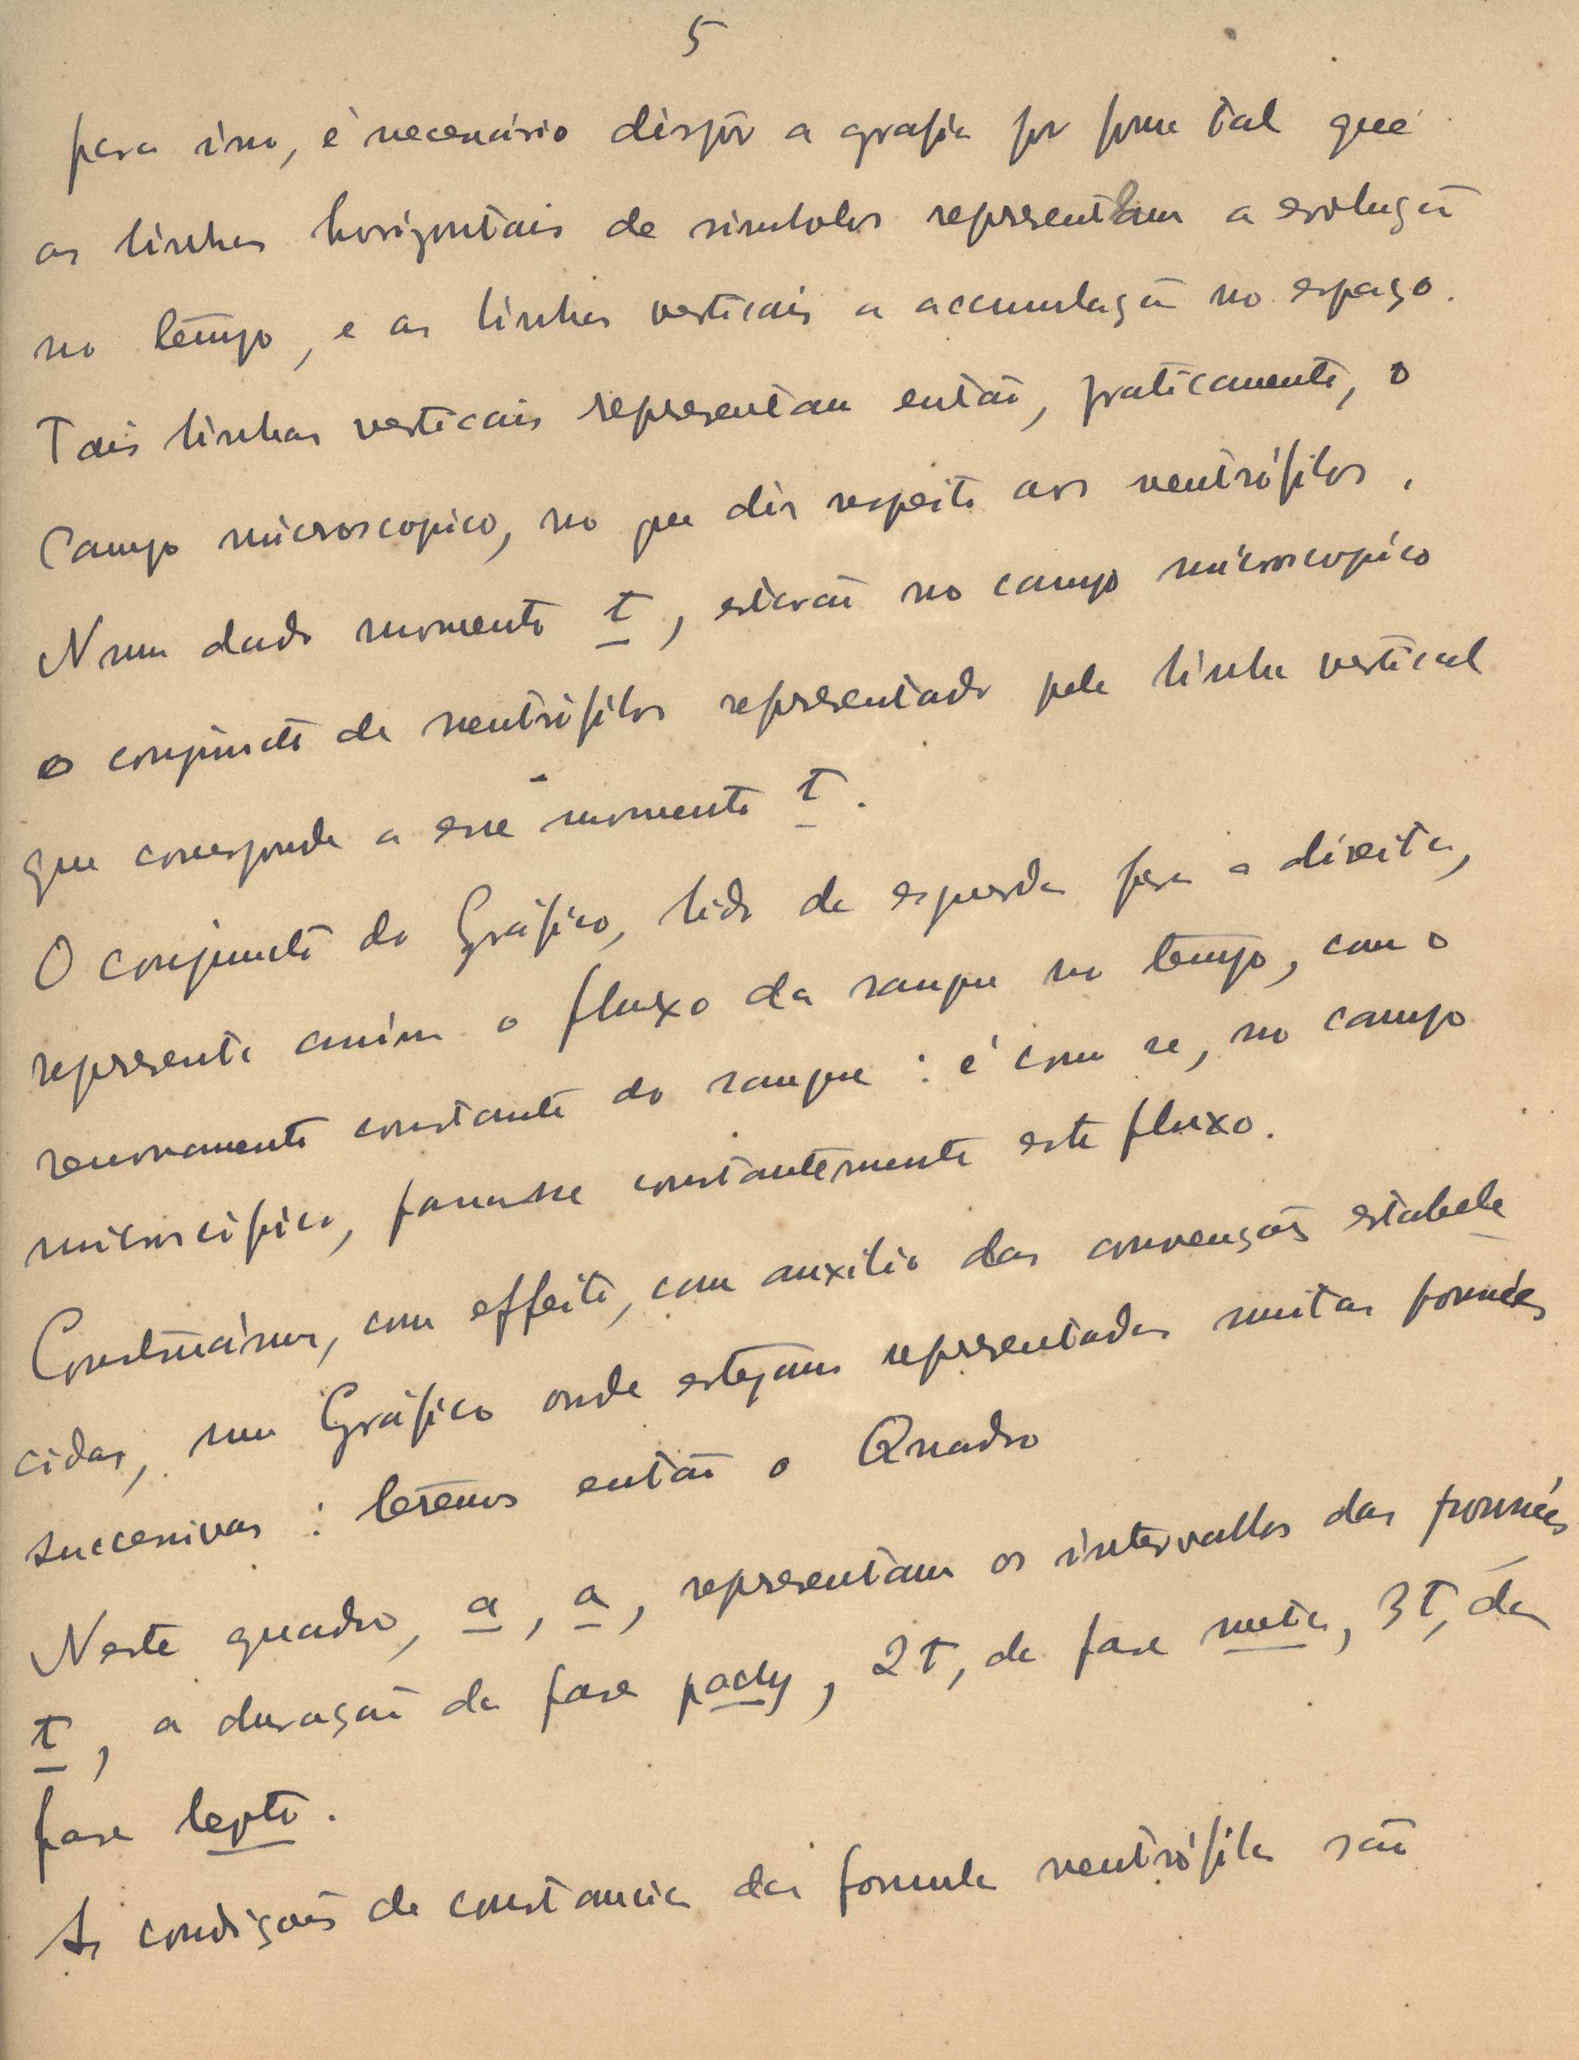 5
para isso, é necessário dispôr a grafia por forma tal que
as linhas horizontais de simbolos representam a evolução
no tempo, e as linhas verticais a accumulação no espaço.
Tais linhas verticais representam então, praticamente, o
Campo microscopico, no que diz respeito aos neutrófilos.
Num dado momento t, estarão no campo microscopico
o conjuncto de neutrófilos representado pela linha vertical
que corresponde a esse momento t.
O conjuncto do Gráfico, lido da esquerda para a direita,
representa assim o fluxo da sangue no tempo, com o
renovamento constante do sangue : é como se, no campo
microscópico, passasse constantemente este fluxo.
Construámos, com effeito, com auxilio das convenções estabele
cidas, um Gráfico onde estejam representadas muitas
successivas : teremos então o Quadro
Neste quadro, a, a, representam os intervallos das
t, a duração da fase pachy, 2t, da fase meta, 3t, da
fase lepto.
As condições de constancia da formula neutrófila são